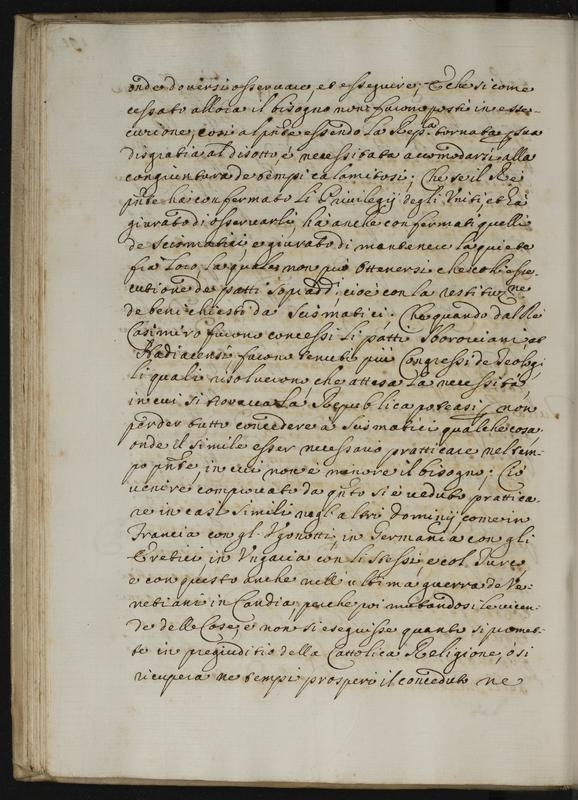 onde doversi osservare et esseguire; E che si come
cessato allora il bisogno non furono posti in esse-
cutione, così al pñte essendo la Rep.ca tornata p sua
disgratia al disotto è necessitata accomodarsi alla
congiuntura de tempi calamitosi; Che se il Rè
pñte hà confermato li Privilegij degli Uniti et hà
giurato di osservarli, hà anche confermati quelli
de Scismatici, e giurato di mantenere la quiete
frà loro, la quale non può ottenersi che coll'esse-
cutione de patti sopradd.i cioè con la restitut.ne
de beni chiesti da Scismatici. Che quando dal Rè
Casimiro furono concessi li patti Sborowiani et
Hadiacensi furono tenuti più Congressi de Teologi
li quali risolverono che attesa la necessità
in cui si trovava la Republica poteasi p non
perder tutto concedere à Scismatici qualche cosa
onde il simile esser necessario pratticare nel tem-
po pñte, in cui non è minore il bisogno; Ciò
venire comprovato da qñto si è veduto prattica-
re in casi simili negl'altri Dominij come in
Francia con gl'Ugonotti, in Germania con gli
Eretici, in Ungaria con li stessi e col Turco
e con questo anche nell'ultima guerra de Ve-
netiani in Candia, perche poi mutandosi le vicen-
de delle Cose, è non si eseguisse quanto si promet-
te in pregiuditio della Cattolica Religione, ò si
ricupera ne tempi prosperi il conceduto ne